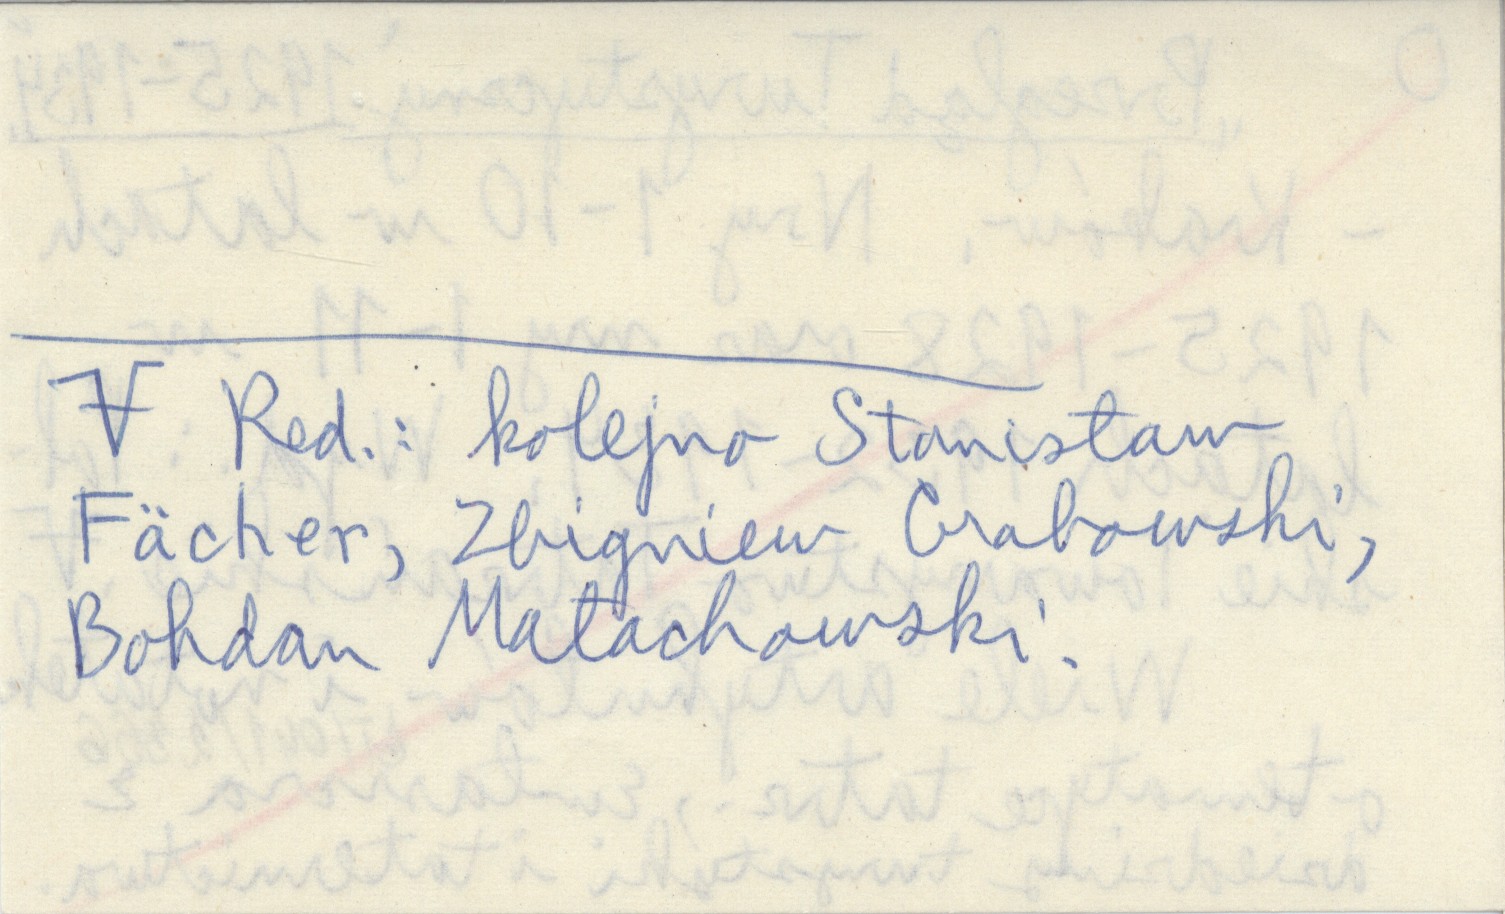 ∀ Red.: kolejno Stanisław
Fächer, Zbigniew Grabowski,
Bohdan Małachowski.